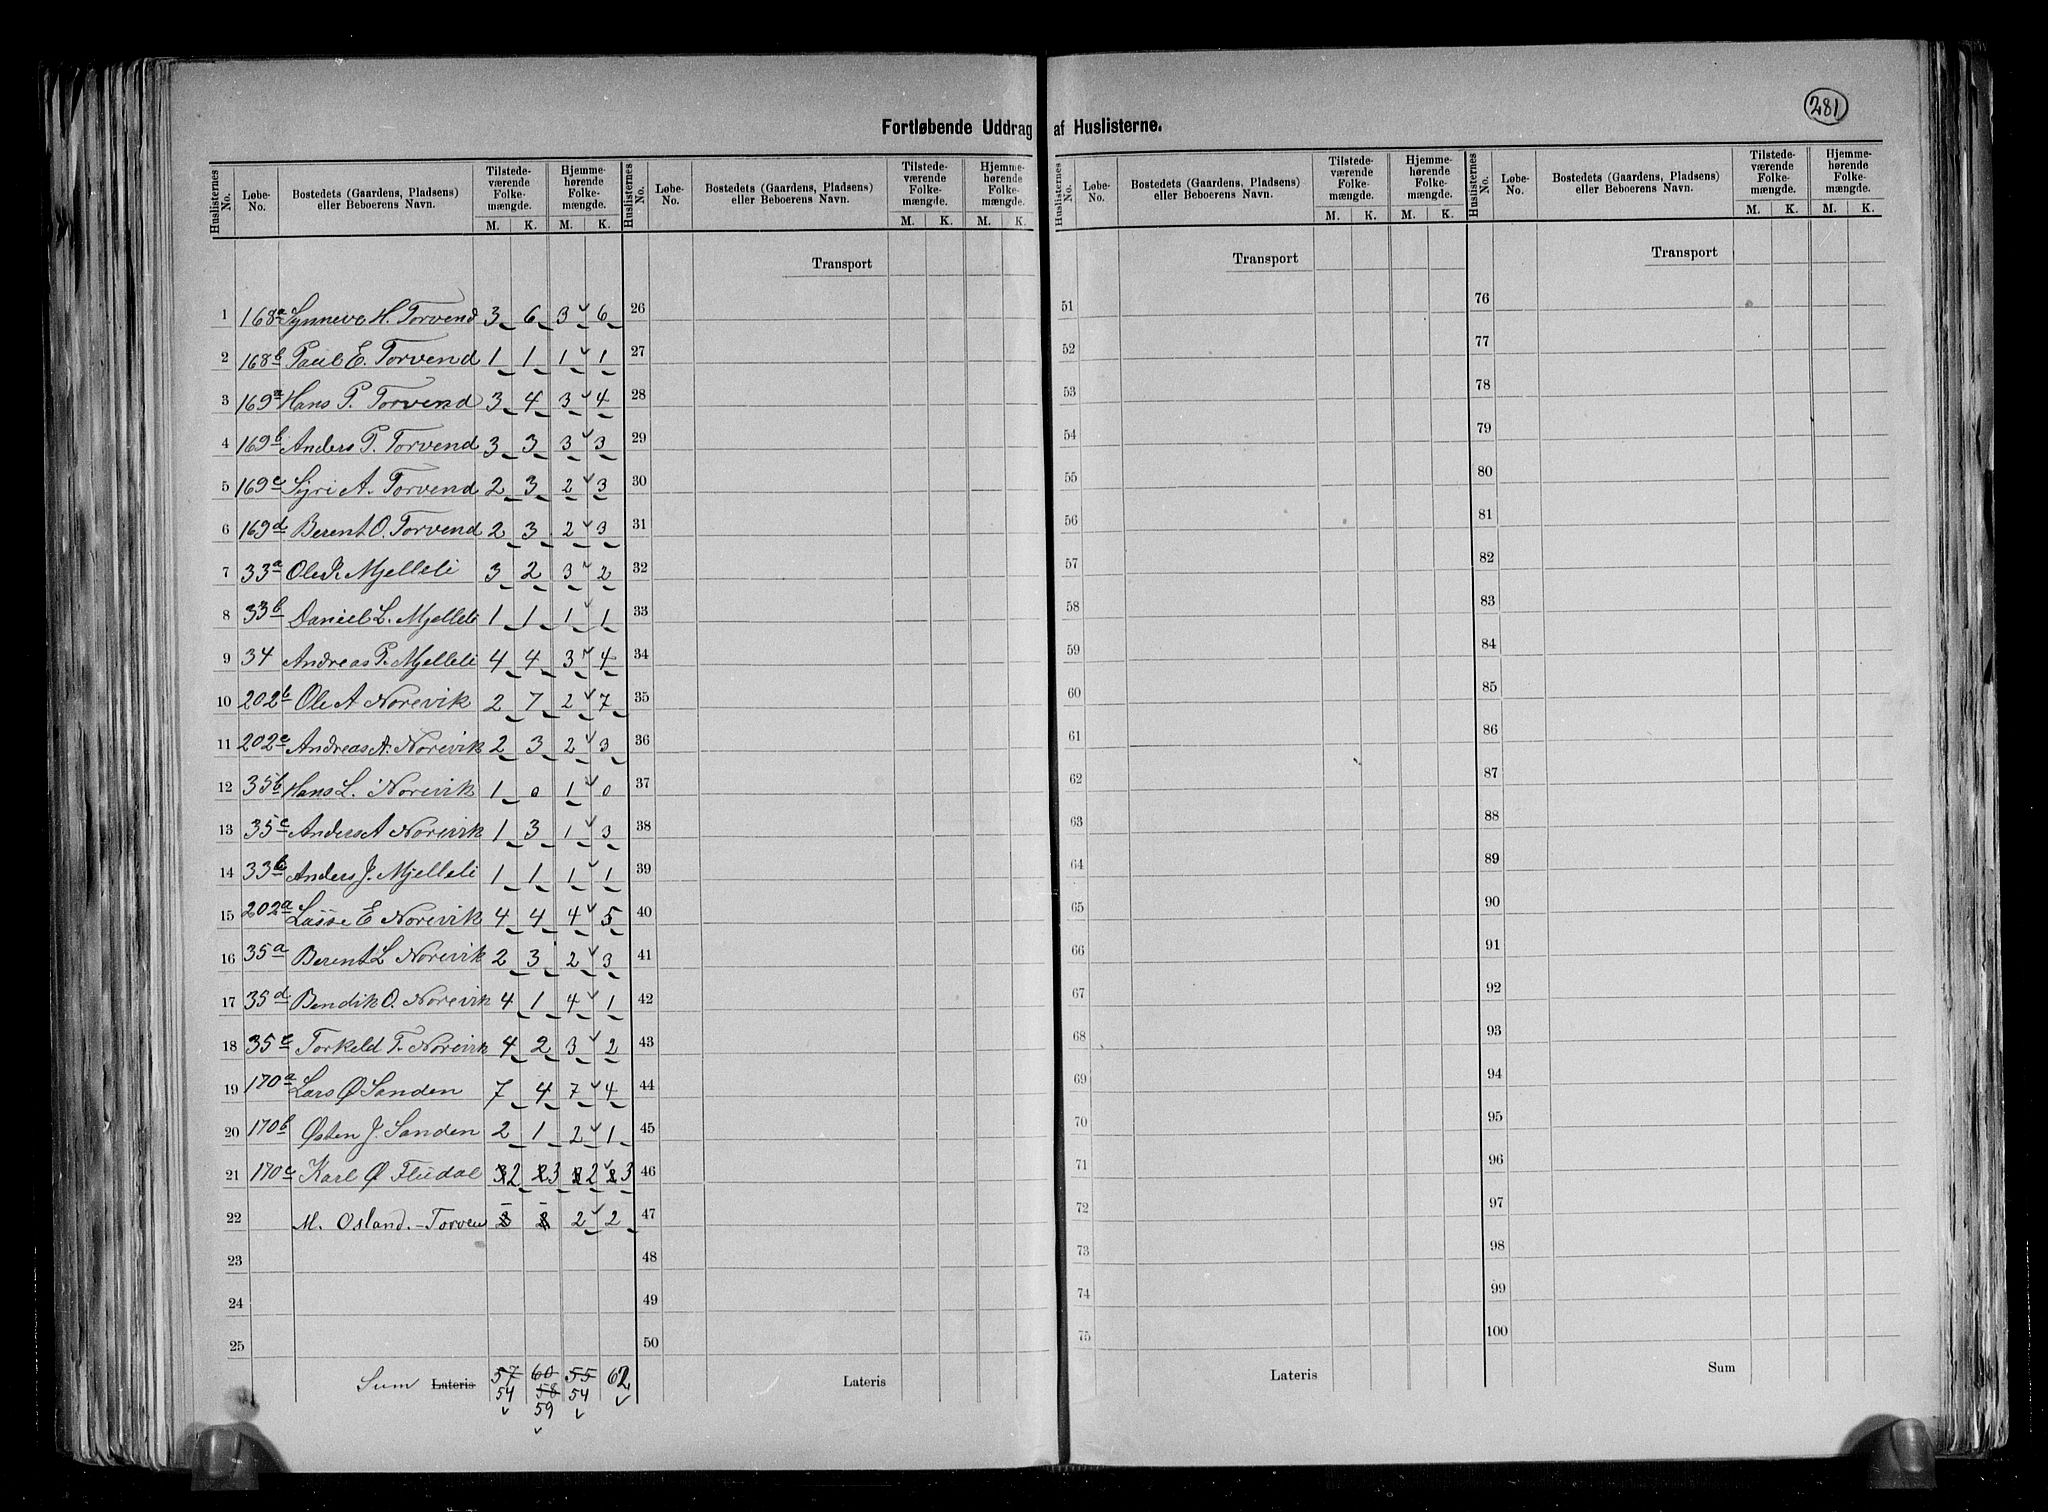 281
Fortløbende Uddrag af Huslisterne.
Huslisternes No. | Løbe-No. | Bostedets (Gaardens, Pladsens) eller Beboerens Navn. | Tilstedeværende Folkemængde. M. K. | Hjemmehørende Folkemængde. M. K.
Huslisternes No. | Løbe-No. | Bostedets (Gaardens, Pladsens) eller Beboerens Navn. | Tilstedeværende Folkemængde. M. K. | Hjemmehørende Folkemængde. M. K.
Huslisternes No. | Løbe-No. | Bostedets (Gaardens, Pladsens) eller Beboerens Navn. | Tilstedeværende Folkemængde. M. K. | Hjemmehørende Folkemængde. M. K.
Huslisternes No. | Løbe-No. | Bostedets (Gaardens, Pladsens) eller Beboerens Navn. | Tilstedeværende Folkemængde. M. K. | Hjemmehørende Folkemængde. M. K.
Transport Transport Transport
1 168a Synneve H. Torvend 3 6 3 6 26 51 76
2 168b Paul E. Torvend 1 1 1 1 27 52 77
3 169a Hans P. Torvend 3 4 3 4 28 53 78
4 169b Anders P. Torvend 3 3 3 3 29 54 79
5 169c Syri A. Torvend 2 3 2 3 30 55 80
6 169d Berent O. Torvend 2 3 2 3 31 56 81
7 33a Ole P. Mjelleli 3 2 3 2 32 57 82
8 33b Daniel L. Mjelleli 1 1 1 1 33 58 83
9 34 Andreas P. Mjelleli 4 4 3 4 34 59 84
10 202b Ole A Norevik 2 7 2 7 35 60 85
11 202c Andreas A. Norevik 2 3 2 3 36 61 86
12 35b Hans L. Norevik 1 0 1 0 37 62 87
13 35c Anders A Norevik 1 3 1 3 38 63 88
14 33b Anders J. Mjelleli 1 1 1 1 39 64 89
15 202a Lasse E Norevik 4 4 4 5 40 65 90
16 35a Berent L Norevik 2 3 2 3 41 66 91
17 35d Bendik O. Norevik 4 1 4 1 42 67 92
18 35e Torkeld T. Norevik 4 2 3 2 43 68 93
19 170a Lars Ø Sanden 7 4 7 4 44 69 94
20 170b Østen J. Sanden 2 1 2 1 45 70 95
21 170c Karl Ø Fludal 2 3 2 3 46 71 96
22 M. Osland. - Torven - - 2 2 47 72 97
23 48 73 98
24 49 74 99
25 50 75 100
Sum Lateris 57 60 55 62 Lateris Lateris Sum
54 58 54
59